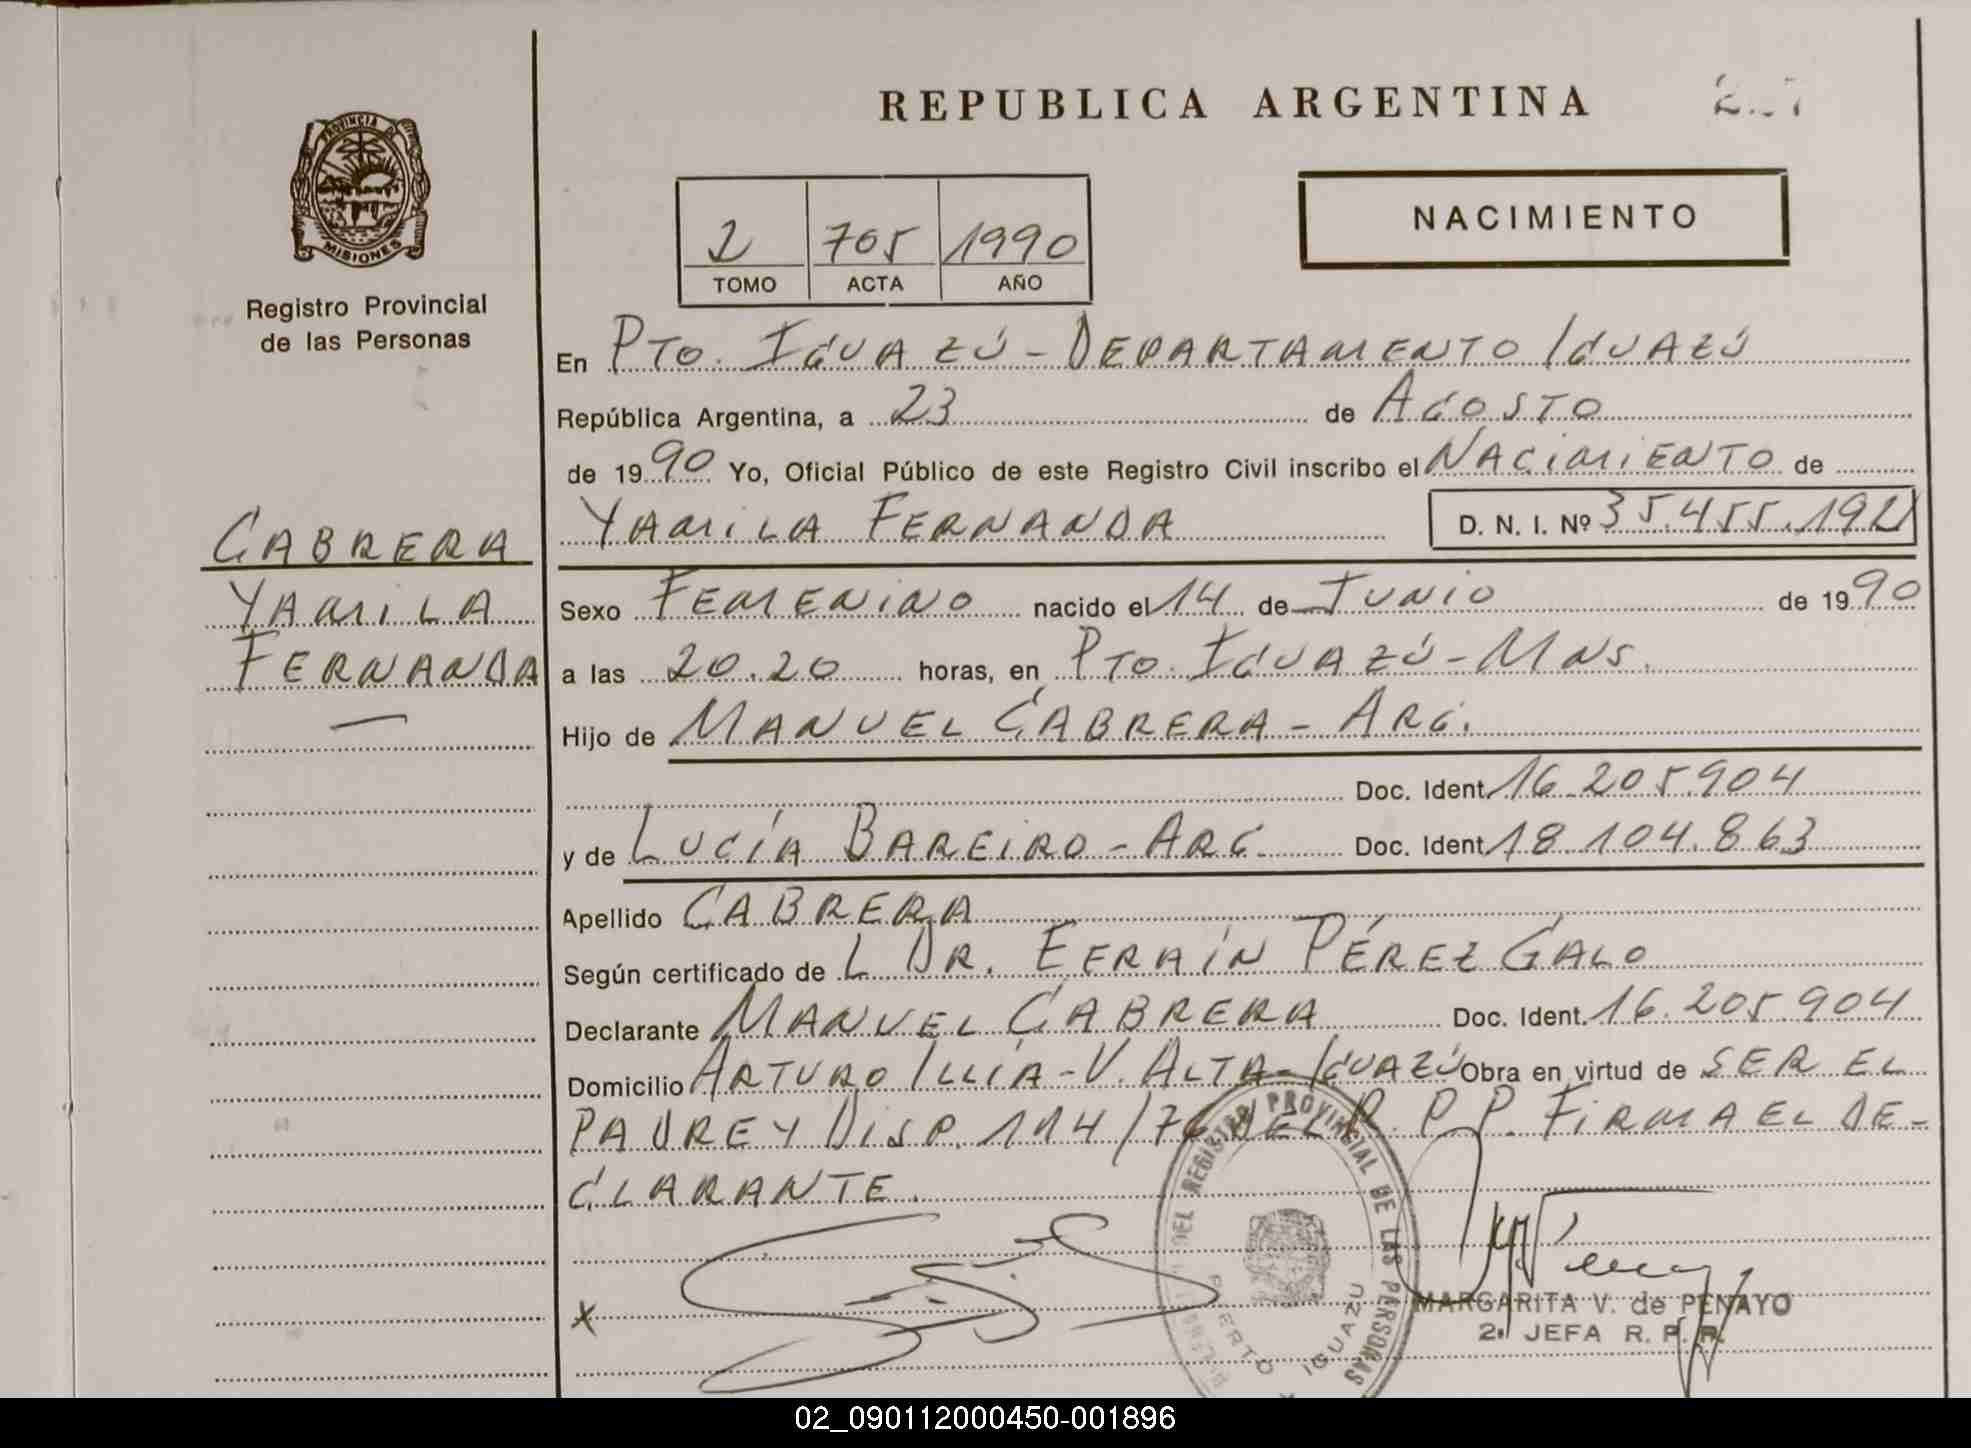 REPUBLICA ARGENTINA
PROVINCIA DE
MISIONES
Registro Provincial
de las Personas
2 705 1990
TOMO ACTA AÑO
NACIMIENTO
En PTO. IGUAZÚ - DEPARTAMENTO IGUAZÚ
República Argentina, a 23 de AGOSTO
de 1990 Yo, Oficial Público de este Registro Civil inscribo el NACIMIENTO de
YAMILA FERNANDA D. N. I. Nº 35.455.192
CABRERA
YAMILA
FERNANDA
Sexo FEMENINO nacido el 14 de JUNIO de 1990
a las 20.20 horas, en PTO. IGUAZÚ - MNS.
Hijo de MANUEL CABRERA - ARG.
Doc. Ident. 16.205.904
y de LUCÍA BAREIRO - ARG. Doc. Ident. 18.104.863
Apellido CABRERA
Según certificado de L DR. EFRAÍN PÉREZ GALO
Declarante MANUEL CABRERA Doc. Ident. 16.205.904
Domicilio ARTURO ILLÍA - V. ALTA - IGUAZÚ Obra en virtud de SER EL
PADRE Y DISP. 114/76 DEL R. P. P. FIRMA EL DE-
CLARANTE.
DEL REGISTRO PROVINCIAL DE LAS PERSONAS
PUERTO IGUAZU
X
MARGARITA V. de PENAYO
2ª JEFA R. P. P.
02_090112000450-001896